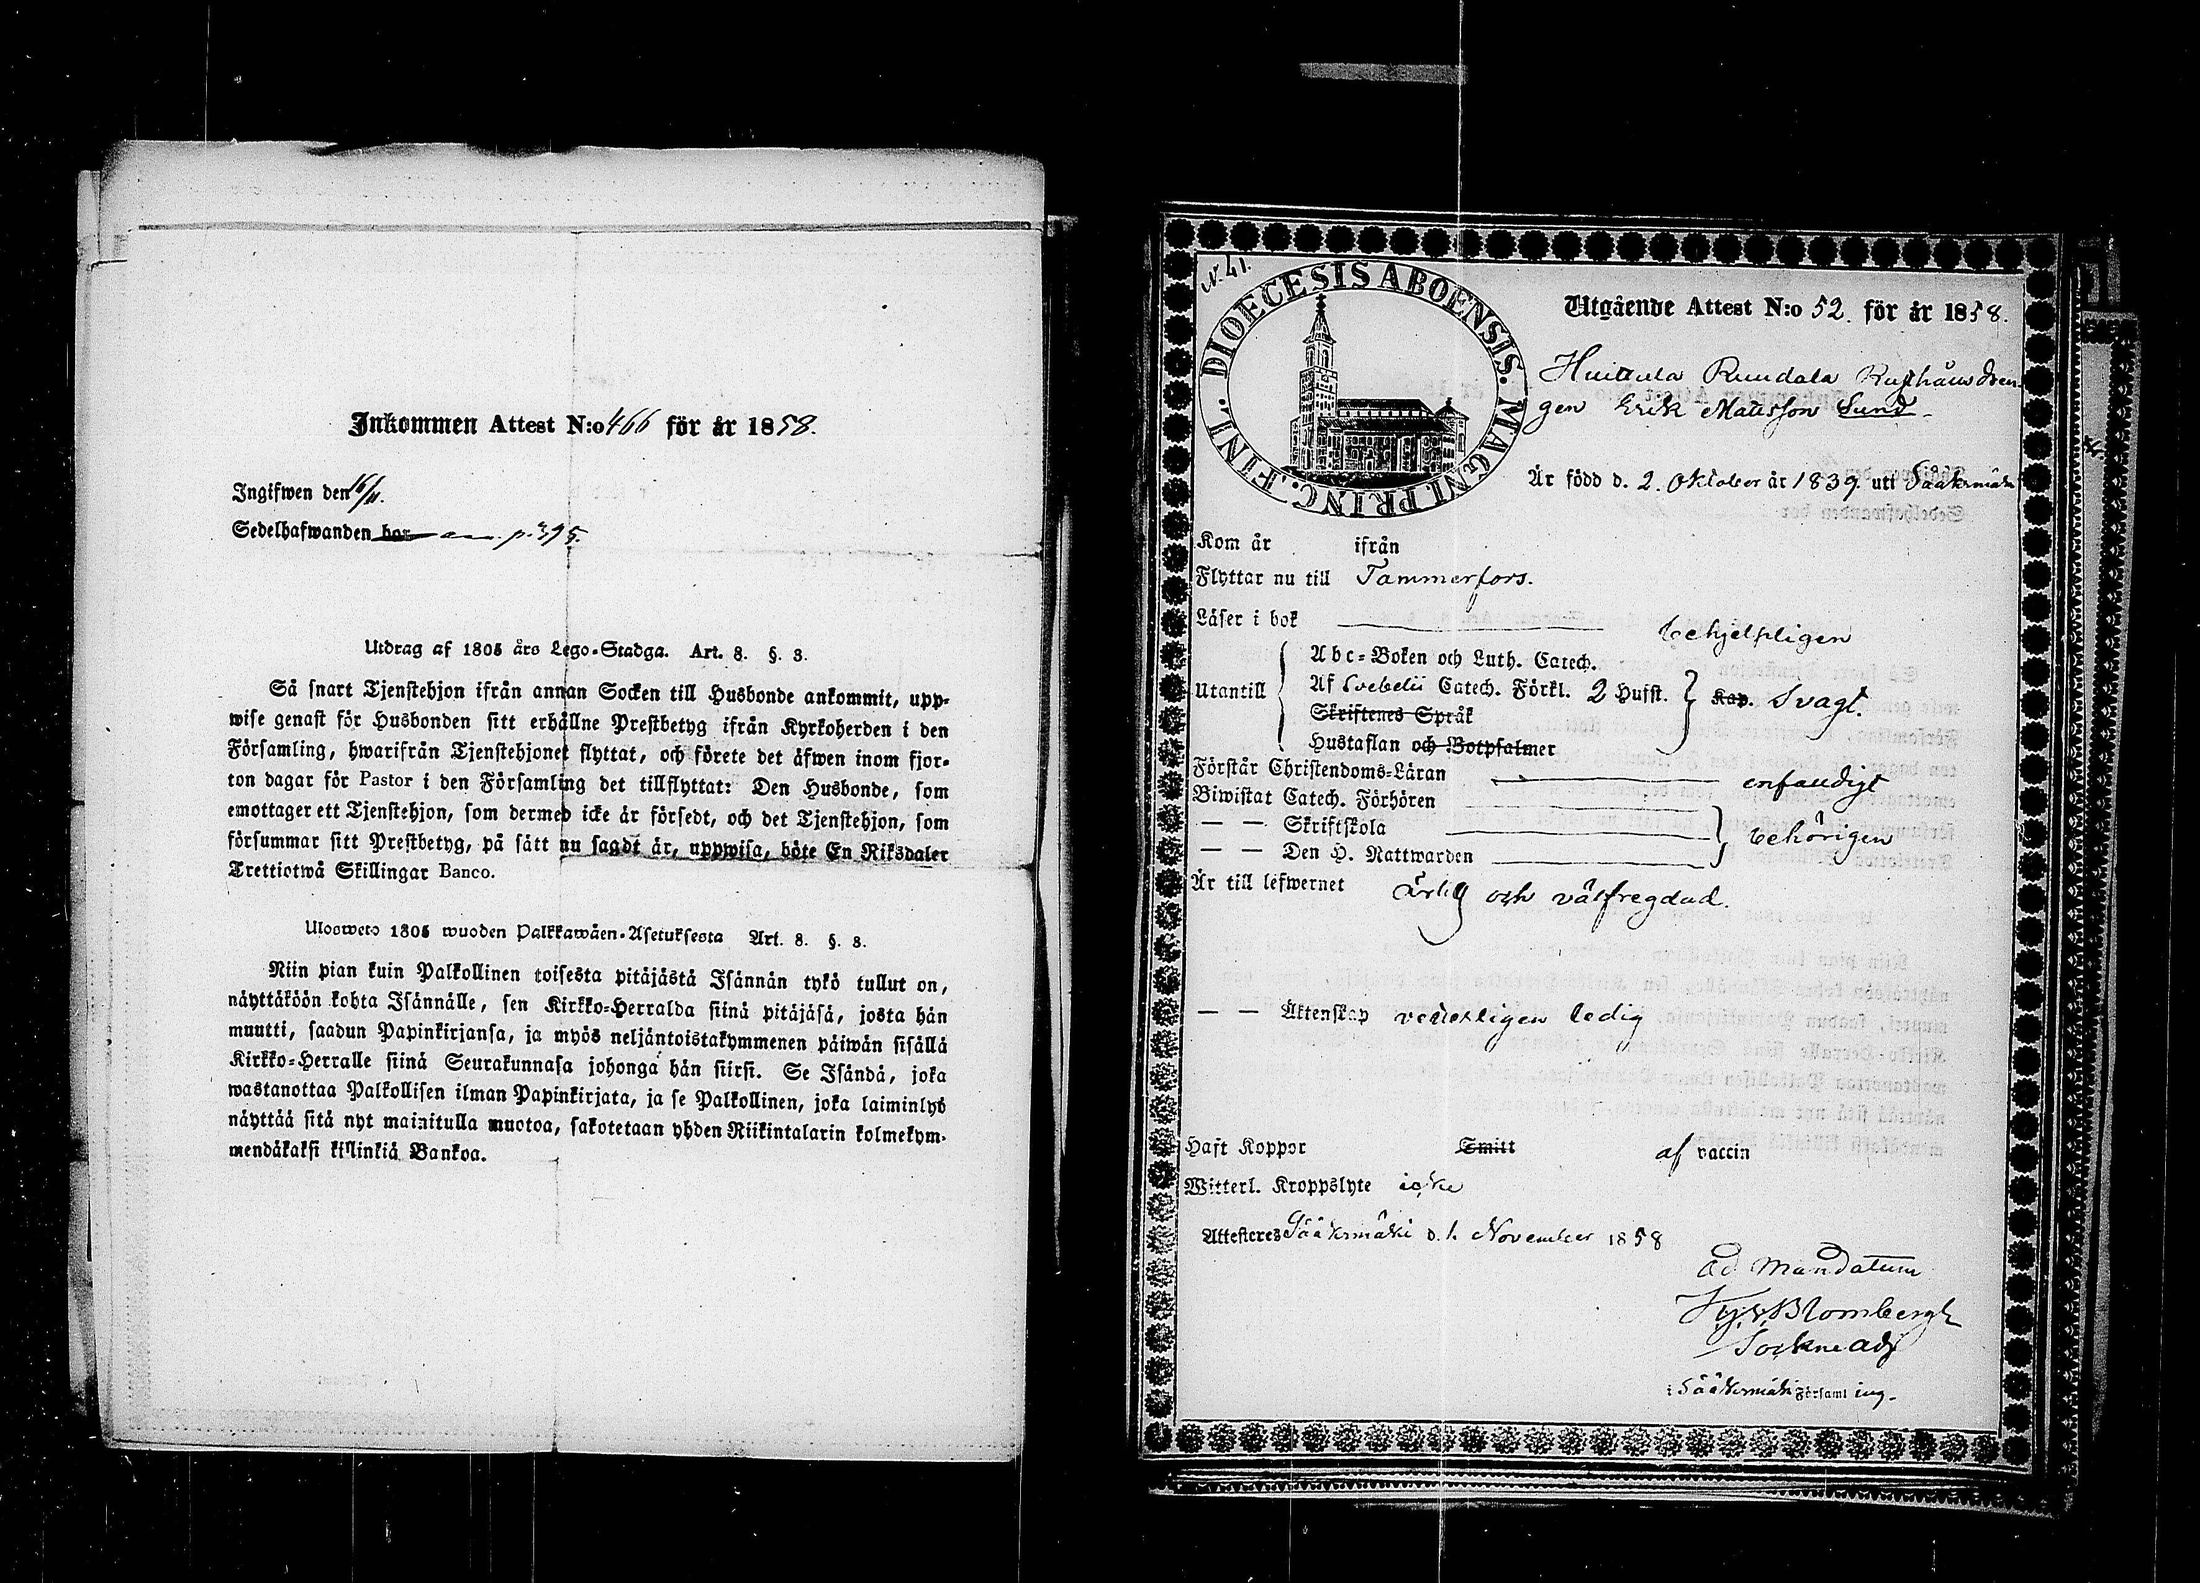 Inkommen Attest N:o 466 för år 1858.
Ingifwen den 16/11.
Sedelhafwanden bar p. 395.
Utdrag af 1805 års Lego-Stadga. Art. 8. §. 3.
Så snart Tjenstehjon ifrån annan Socken till Husbonde ankommit, upp-
wise genast för Husbonden sitt erhållne Prestbetyg ifrån Kyrkoherden i den
Församling, hwarifrån Tjenstehjonet flyttat, och förete det äfwen inom fjor-
ton dagar för Pastor i den Församling det tillflyttat: Den Husbonde, som
emottager ett Tjenstehjon, som dermed icke är försedt, och det Tjenstehjon, som
försummar sitt Prestbetyg, på sätt nu sagdt är, uppwisa, böte En Riksdaler
Trettiotwå Skillingar Banco.
Ulosweto 1805 wuoden Palkkawäen-Asetuksesta Art. 8. §. 3.
Niin pian kuin Palkollinen toisesta pitäjästä Isännän tykö tullut on,
näyttäköön kohta Isännälle, sen Kirkko-Herralda siinä pitäjäsä, josta hän
muutti, saadun Papinkirjansa, ja myös neljäntoistakymmenen päiwän sisällä
Kirkko-Herralle siinä Seurakunnasa johonga hän siirsi. Se Isändä, joka
wastanottaa Palkollisen ilman Papinkirjata, ja se Palkollinen, joka laiminlyö
näyttää sitä nyt mainitulla muotoa, sakotetaan yhden Riikintalarin kolmekym-
mendäkaksi killinkiä Bankoa.
N. 41.
DIOECESIS ABOENSIS. MAGNI. PRINC. FINL.
Utgående Attest N:o 52. för år 1858.
Huittula Rundala Rusthålls dren-
gen Erik Matsson Lund.
Är född d. 2. Oktober år 1839. uti Sääksmäki
Kom år ifrån
Flyttar nu till Tammerfors.
Läser i bok behjelpligen
Abc-Boken och Luth. Catech.
Utantill Af Svebelii Catech. Förkl. 2 Hufst. Kap. Svagt.
Skriftenes Språk
Hustaflan och Botpsalmer
Förstår Christendoms-Läran enfaldigt
Biwistat Catech. Förhören
— — Skriftskola behörigen
— — Den H. Nattwarden
Är till lefwernet ärlig och välfregdad.
— — Äktenskap veterligen ledig
Haft Koppor Smitt af vaccin
Witterl. Kroppslyte icke
Attesteres Sääksmäki d. 1. November 1858
Ad Mandatum
Blombergh
Sockne adj
i Sääksmäki Församling.